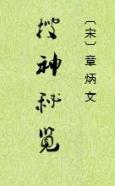 〔宋〕章炳文
搜神秘览